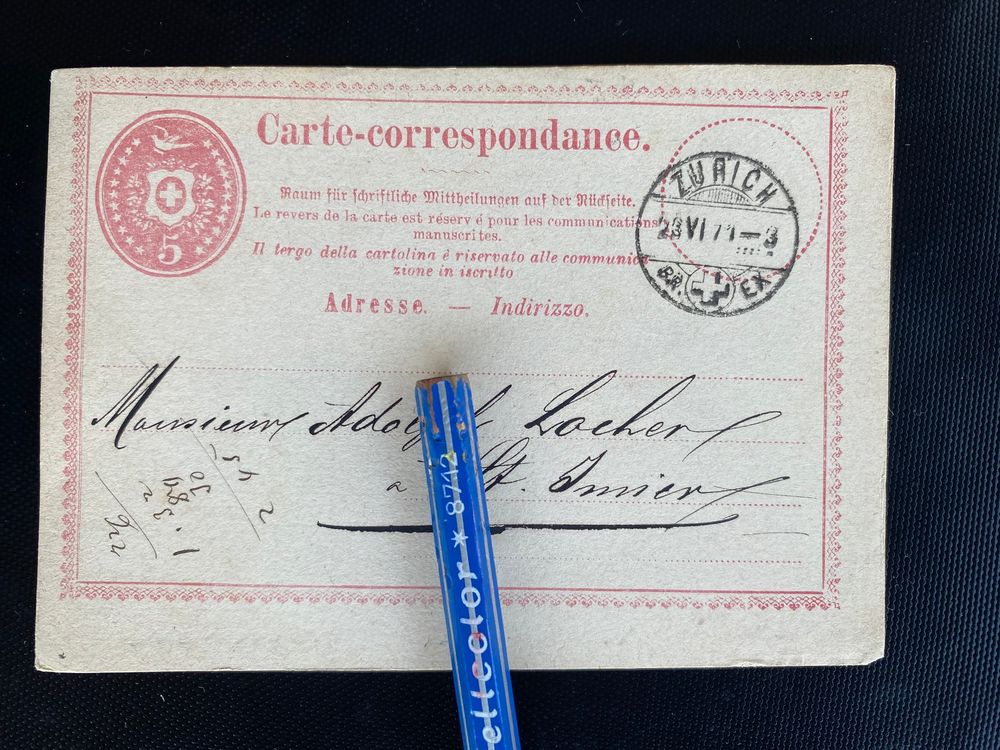 Carte-correspondance.
Raum für schriftliche Mittheilungen auf der Rückseite.
Le revers de la carte est réservé pour les communications
manuscrites.
Il tergo della cartolina è riservato alle communica
zione in iscritto
Adresse. — Indirizzo.
5
ZÜRICH
VI 71-3
BR. EX.
Monsieur Locher
a St. Imier
2 45
ellector * 8712